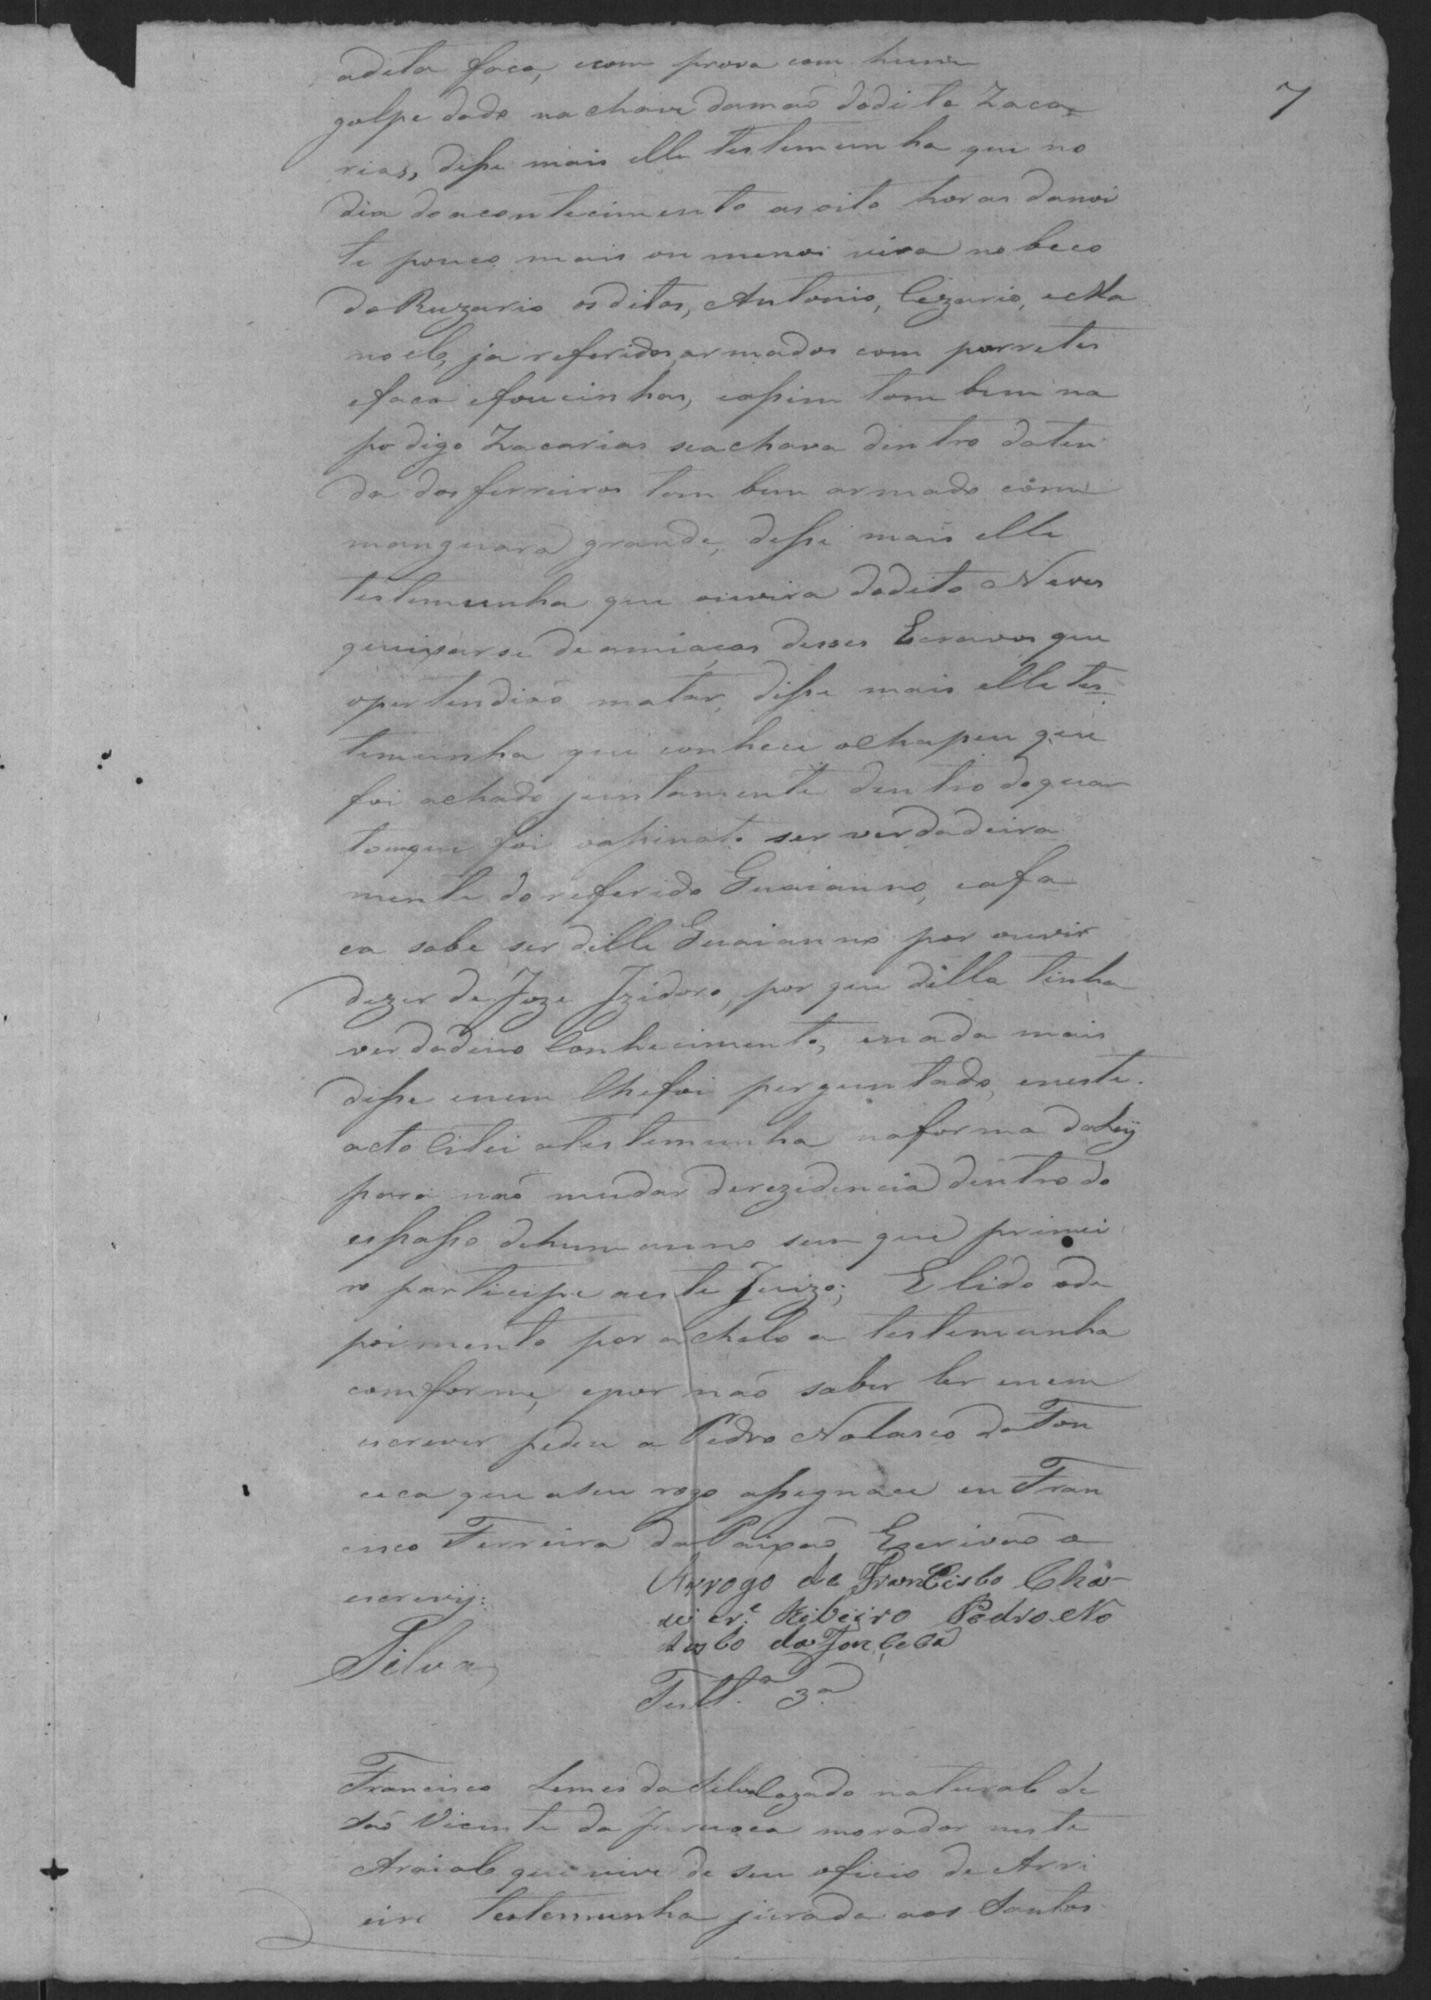 7
adita faca, ecom prova com hum
golpe dado na chave damaõ dodi to Zaca=
rias, disse mais elle testemunha que no
dia doacontecimento as oito horas danoi
te pouco mais ou menos vira no beco
do Ruzario os ditos, Antonio, Cezario, e Ma
noel, ja referidos armados com porretes
efaca efoucinhas, eassim tom bem na
po digo Zacarias seachava dentro daten
da dos ferreiros tom bem armado com
manguara grande, disse mais elle
testemunha que ouvira dodito Neves
queixarse de amiaças desses Escravos que
opertendiaõ matar, disse mais elle tes
temunha que conhece ochapeu que
foi achado juntamente dentro doquar
toemque foi assinato ser verdadeira
mente do referido Guaianno, eafa
ca sabe ser dille Guaianno por ouvir
dizer de Joze Izidoro, por que dilla tinha
verdadeiro Conhecimento, enada mais
disse enem lhefoi perguntado, eneste
acto Citei atestemunha naforma daLey
para naõ mudar derezidencia dentro do
espasso dehum anno sem que primei
ro participe aeste Juizo; E lido ode
poimento por achalo a testemunha
comforme, epor naõ saber ler enem
escrever pedeu a Pedro Nolasco da Fon
ceca que aseu rogo assignace eu Fran
cisco Ferreira da Paixaõ Escrivaõ o
escrevy:
Arrogo de Francisco Cha
vier Ribeiro Pedro No
lasco da Fonceca
Silva
Testª 3ª
Francisco Lemes da Silva Cazado natural de
Saõ Vicente da Juruoca morador neste
Araial que vive de seu oficio de Arri
eiro testemunha jurada aos Santos